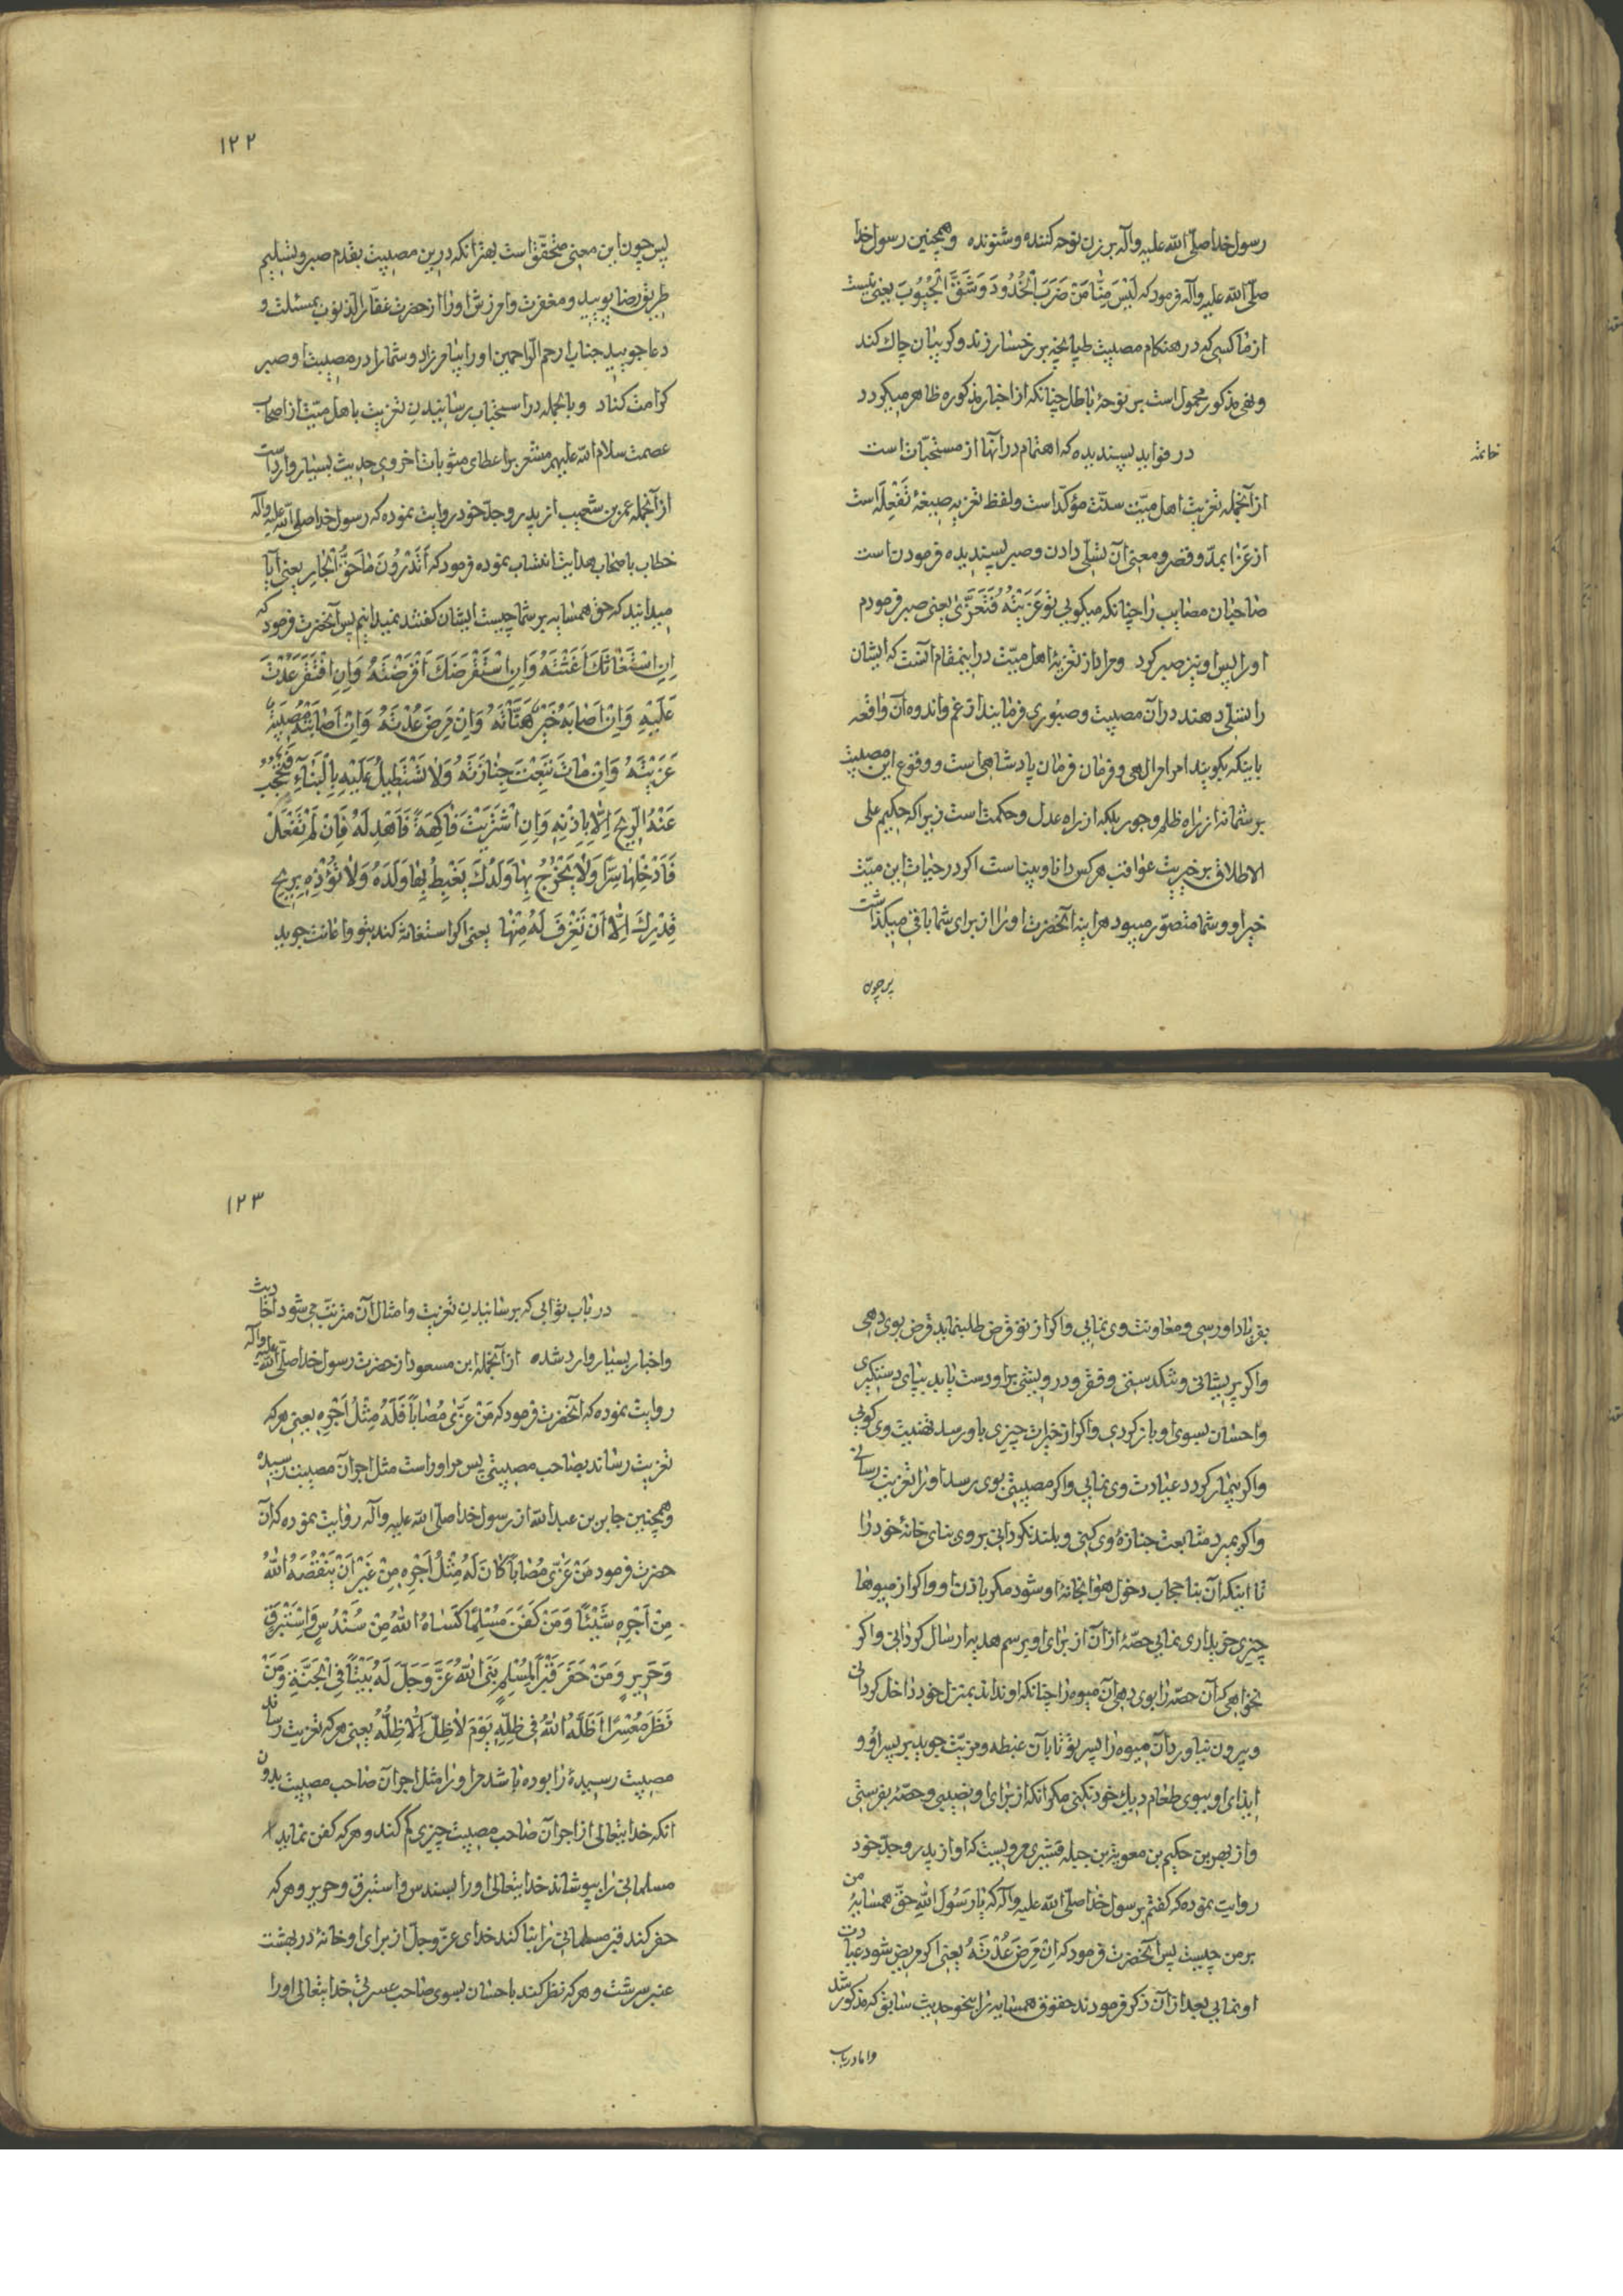 رسول خدا صلی الله علیه وآله بر زن نوحه کننده و شنونده وهمچنین رسول خدا
صلی الله علیه وآله فرمود که لَیْسَ مِنّا مَنْ ضَرَبَ الْخُدُودَ وَشَقَّ الْجُیُوبَ یعنی نیست
از ما کسی که در هنکام مصیبت طپانچه بر رخسار زند و کریبان چاك کند
و نهی مذکور محمول است بر نوحهٔ باطل چنانکه از اخبار مذکوره ظاهر میکردد
خاتمة
در فواید پسندیده که اهتمام در آنها از مستحبّات است
از آنجمله تعزیت اهل میّت سنّت مؤکّد است ولفظ تعزیه صیغهٔ تَفْعِلَه است
از عَزا بمدّ و قصر و معنی آن تسلّی دادن و صبر پسندیده فرمودن است
صاحبان مصایب را چنانکه میکویی تو عَزَّیْتُهُ فَتَعَزّیٰ یعنی صبر فرمودم
او را پس او نیز صبر کرد و مراد از تعزیهٔ اهل میّت در اینمقام آنست که ایشان
را تسلّی دهند در آن مصیبت و صبوری فرمایند از غم و اندوه آن واقعه
باینکه بکویند امر امر الهی و فرمان فرمان پادشاهی است و وقوع این مصیبت
بر شما نه از راه ظلم و جور بلکه از راه عدل و حکمت است زیرا که حکیم علی
الاطلاق بر خیریت عواقب هر کس دانا و بیناست اکر در حیات این میّت
خیر او و شما متصوّر میبود هراینه آنحضرت او را از برای شما باقی میکذاشت
پس چون
۱۲۲
پس چون این معنی متحقّق است بهتر آنکه درین مصیبت بقدم صبر و تسلیم
طریق رضا پویید و مغفرت و آمرزش او را از حضرت غفّار الذنوب بمسئلت و
دعا جویید جناب ارحم الرّاحمین او را بیامرزاد و شما را در مصیبت او صبر
کرامت کناد و بالجمله در استحباب رسانیدن تعزیت باهل میّت از اصحاب
عصمت سلام الله علیهم مشعر بر اعطای مثوبات اخروی حدیث بسیار وارد است
از آنجمله عمر بن شعیب از پدر و جدّ خود روایت نموده که رسول خدا صلی الله علیه وآله
خطاب باصحاب هدایت انتساب نموده فرمود که أَتَدْرُونَ مٰا حَقُّ الْجٰارِ یعنی آیا
میدانید که حق همسایه بر شما چیست ایشان کفتند نمیدانیم پس آنحضرت فرمود که
اِنِ اسْتَغٰاثَكَ أَغَثْتَهُ وَاِنِ اسْتَقْرَضَكَ اَقْرَضْتَهُ وَاِنِ افْتَقَرَ عُدْتَ
عَلَیْهِ وَاِنْ اَصٰابَهُ خَیْرٌ هَنَّأْتَهُ وَاِنْ مَرِضَ عُدْتَهُ وَاِنْ اَصٰابَتْهُ مُصِیبَةٌ
عَزَّیْتَهُ وَاِنْ مٰاتَ تَبِعْتَ جِنٰازَتَهُ وَلا تَسْتَطِیلُ عَلَیْهِ بِالْبَنٰاءِ فَتَحْجُبُ
عَنْهُ الرّیحَ اِلّا بِاِذْنِهِ وَاِنِ اشْتَرَیْتَ فٰاکِهَةً فَاَهْدِ لَهُ فَاِنْ لَمْ تَفْعَلْ
فَاَدْخِلْهٰا سِرًّا وَلٰا یَخْرُجْ بِهٰا وَلَدُكَ یَغیطُ بِهٰا وَلَدَهُ وَلٰا تُؤْذِهِ بِریحِ
قِدْرِكَ اِلّا اَنْ تَغْرِفَ لَهُ مِنْهٰا یعنی اکر استغاثه کند بتو و اعانت جوید
بفریاد او رسی و معاونت وی نمایی و اکر از تو قرض طلب نماید قرض بوی دهی
و اکر پریشانی و تنکدستی و فقر و درویشی بر او دست یابد بپای دستکیری
و احسان بسوی او باز کردی و اکر از خیرات چیزی باو رسد تهنیت وی کویی
و اکر بیمار کردد عیادت وی نمایی و اکر مصیبتی بوی رسد او را تعزیت رسانی
و اکر بمیرد متابعت جنازهٔ وی کنی و بلند نکردانی بر وی بنای خانهٔ خود را
تا اینکه آن بنا حجاب دخول هوا بخانهٔ او شود مکر باذن او و اکر از میوها
چیزی خریداری نمایی حصّهٔ از آن از برای او برسم هدیه ارسال کردانی و اکر
نخواهی که آن حصّه را بوی دهی آن میوه را چنانکه او نداند بمنزل خود داخل کردانی
و بیرون نیاورد آن میوه را پسر تو تا بآن غبطه و مزیّت جوید بر پسر او و
ایذای او ببوی طعام دیك خود نکنی مکر آنکه از برای او نصیبی و حصّهٔ بفرستی
و از بهز بن حکیم بن معویة بن جیله قشیری مرویست که او از پدر و جدّ خود
روایت نموده که کفتم برسول خدا صلّی الله علیه وآله که یٰا رَسُولَ اللهِ حقّ همسایهٔ من
بر من چیست پس آنحضرت فرمود که اِنْ مَرِضَ عُدْتَهُ یعنی اکر مریض شود عیادت
او نمایی بعد از آن ذکر فرمودند حقوق همسایه را بنحو حدیث سابق که مذکور شد
و اما در باب
۱۲۳
در باب ثوابی که بر رسانیدن تعزیت و امثال آن مترتّب می شود احادیث
و اخبار بسیار وارد شده از آنجمله ابن مسعود از حضرت رسول خدا صلی الله علیه وآله
روایت نموده که آنحضرت فرمود که مَنْ عَزّیٰ مُصٰاباً فَلَهُ مِثْلُ اَجْرِهِ یعنی هر که
تعزیت رساند بصاحب مصیبتی پس مر او راست مثل اجر آن مصیبت رسیده
وهمچنین جابر بن عبد الله از رسول خدا صلّی الله علیه وآله روایت نموده که آن
حضرت فرمود مَنْ عَزّیٰ مُصٰاباً کٰانَ لَهُ مِثْلُ اَجْرِهِ مِنْ غَیْرِ اَنْ یَنْقُصَهُ اللهُ
مِنْ اَجْرِهِ شَیْئاً وَمَنْ کَفَّنَ مُسْلِماً کَسٰاهُ اللهُ مِنْ سُنْدُسٍ وَاِسْتَبْرَقٍ
وَحَریرٍ وَمَنْ حَفَرَ قَبْراً لِمُسْلِمٍ بَنَی اللهُ عَزَّ وَجَلَّ لَهُ بَیْتاً فِی الْجَنَّةِ وَمَنْ
نَظَرَ مُعْسِرًا اَظَلَّهُ اللهُ فی ظِلِّهِ یَوْمَ لٰا ظِلَّ اِلّا ظِلُّهُ یعنی هر که تعزیت رساند
مصیبت رسیدهٔ را بوده باشد مر او را مثل اجر آن صاحب مصیبت بدون
آنکه خدایتعالی از اجر آن صاحب مصیبت چیزی کم کند و هر که کفن نماید
مسلمانی را بپوشاند خدایتعالی او را بسندس و استبرق و حریر و هر که
حفر کند قبر مسلمانی را بنا کند خدای عزّ وجلّ از برای او خانهٔ در بهشت
عنبر سرشت و هر که نظر کند باحسان بسوی صاحب عسرتی خدایتعالی او را